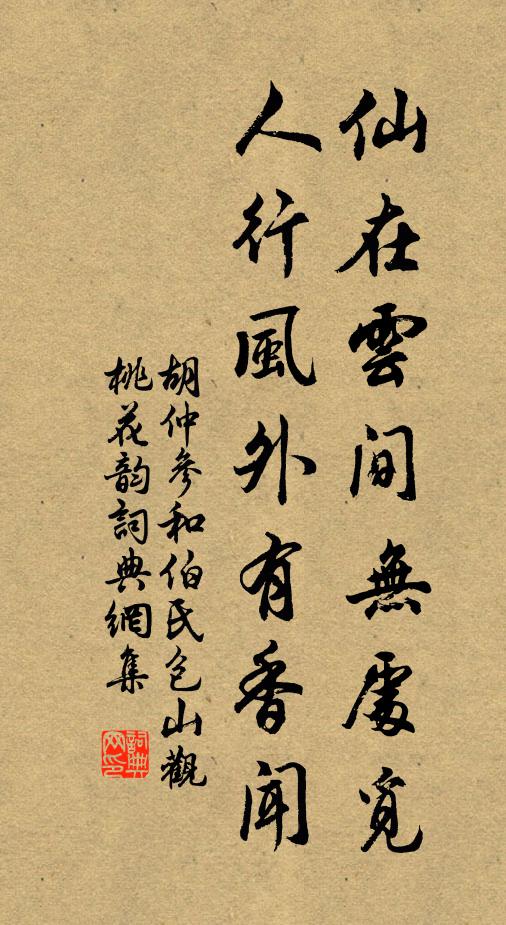 仙在雲間無處覓
人行風外有香聞
胡仲參和伯氏包山觀
桃花韵詞典網集
詞典网印